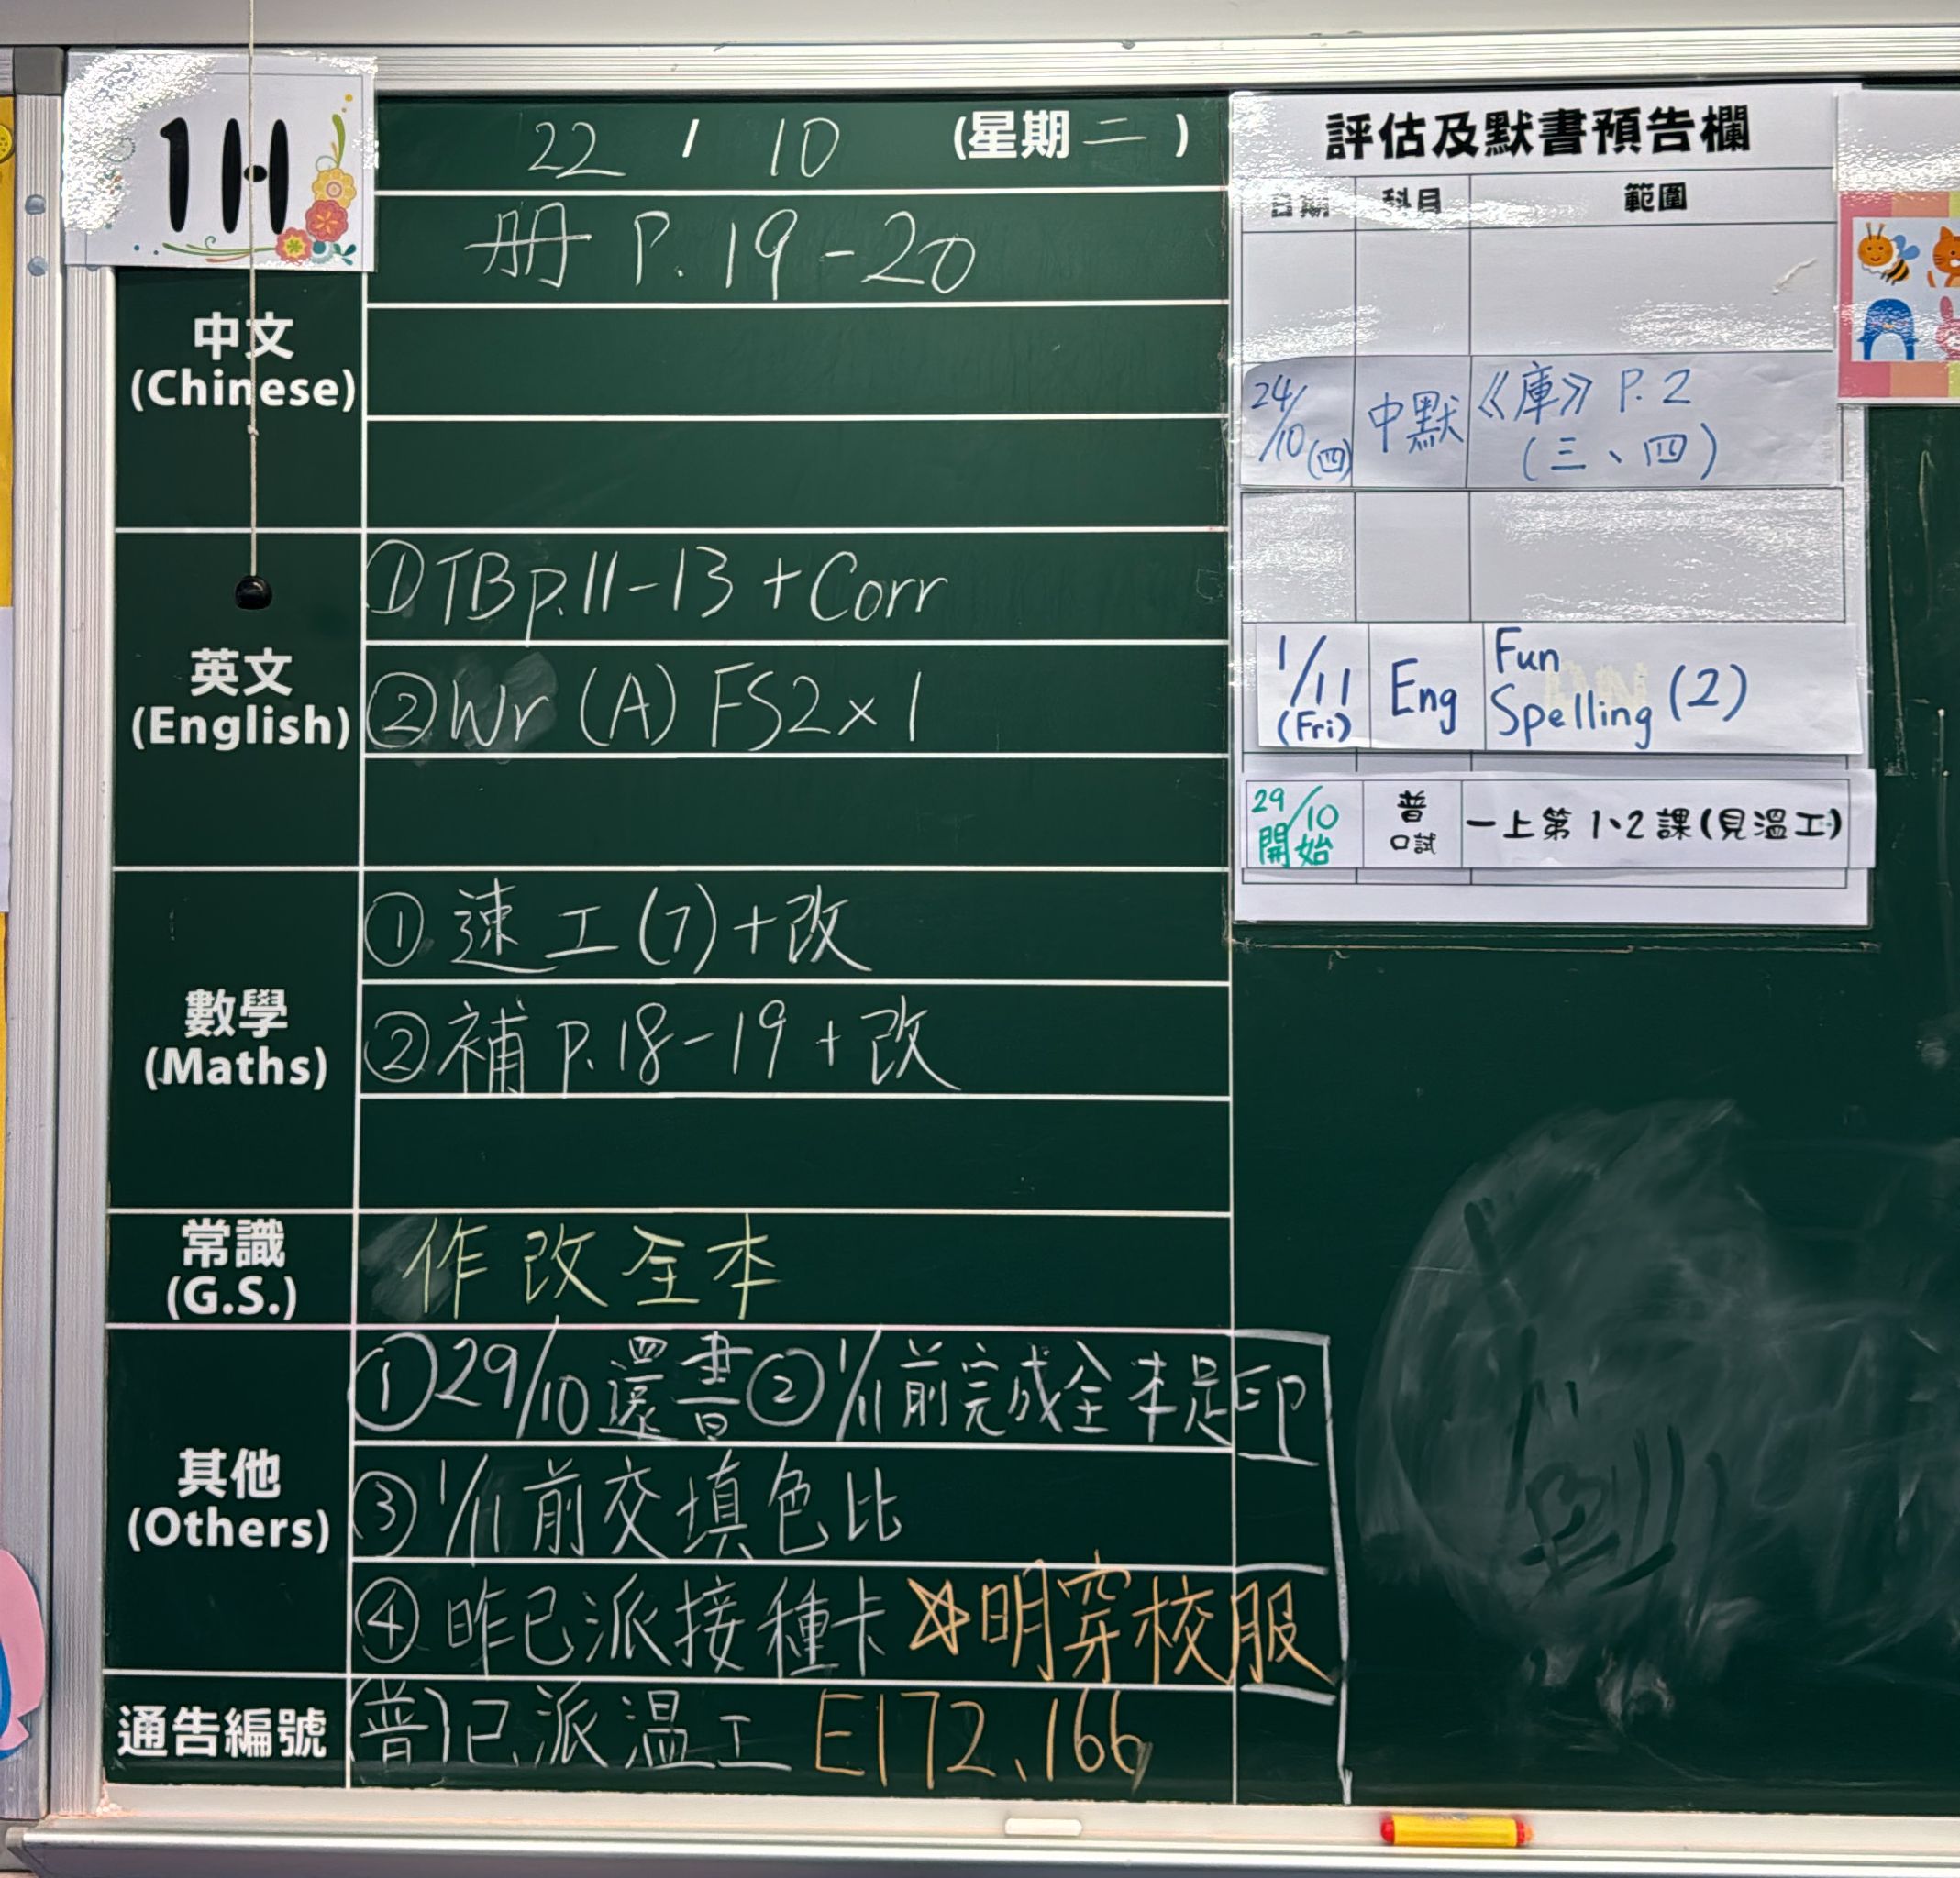 1H
22 / 10 (星期二)
中文
(Chinese)
册 P. 19-20
英文
(English)
① TB p.11-13 + Corr
② Wr (A) FS2 × 1
數學
(Maths)
① 速工(7)+改
② 補 P.18-19 + 改
常識
(G.S.)
作改全本
其他
(Others)
① 29/10 還書 ② 1/11前完成全本足印
③ 1/11 前交填色比
④ 昨已派接種卡 ☆明穿校服
通告編號
(普)已派溫工 E172、166
評估及默書預告欄
日期 科目 範圍
24/10(四) 中默 《庫》P.2
(三、四)
1/11 (Fri) Eng Fun Spelling (2)
29/10 開始 普 口試 一上第1、2課(見溫工)